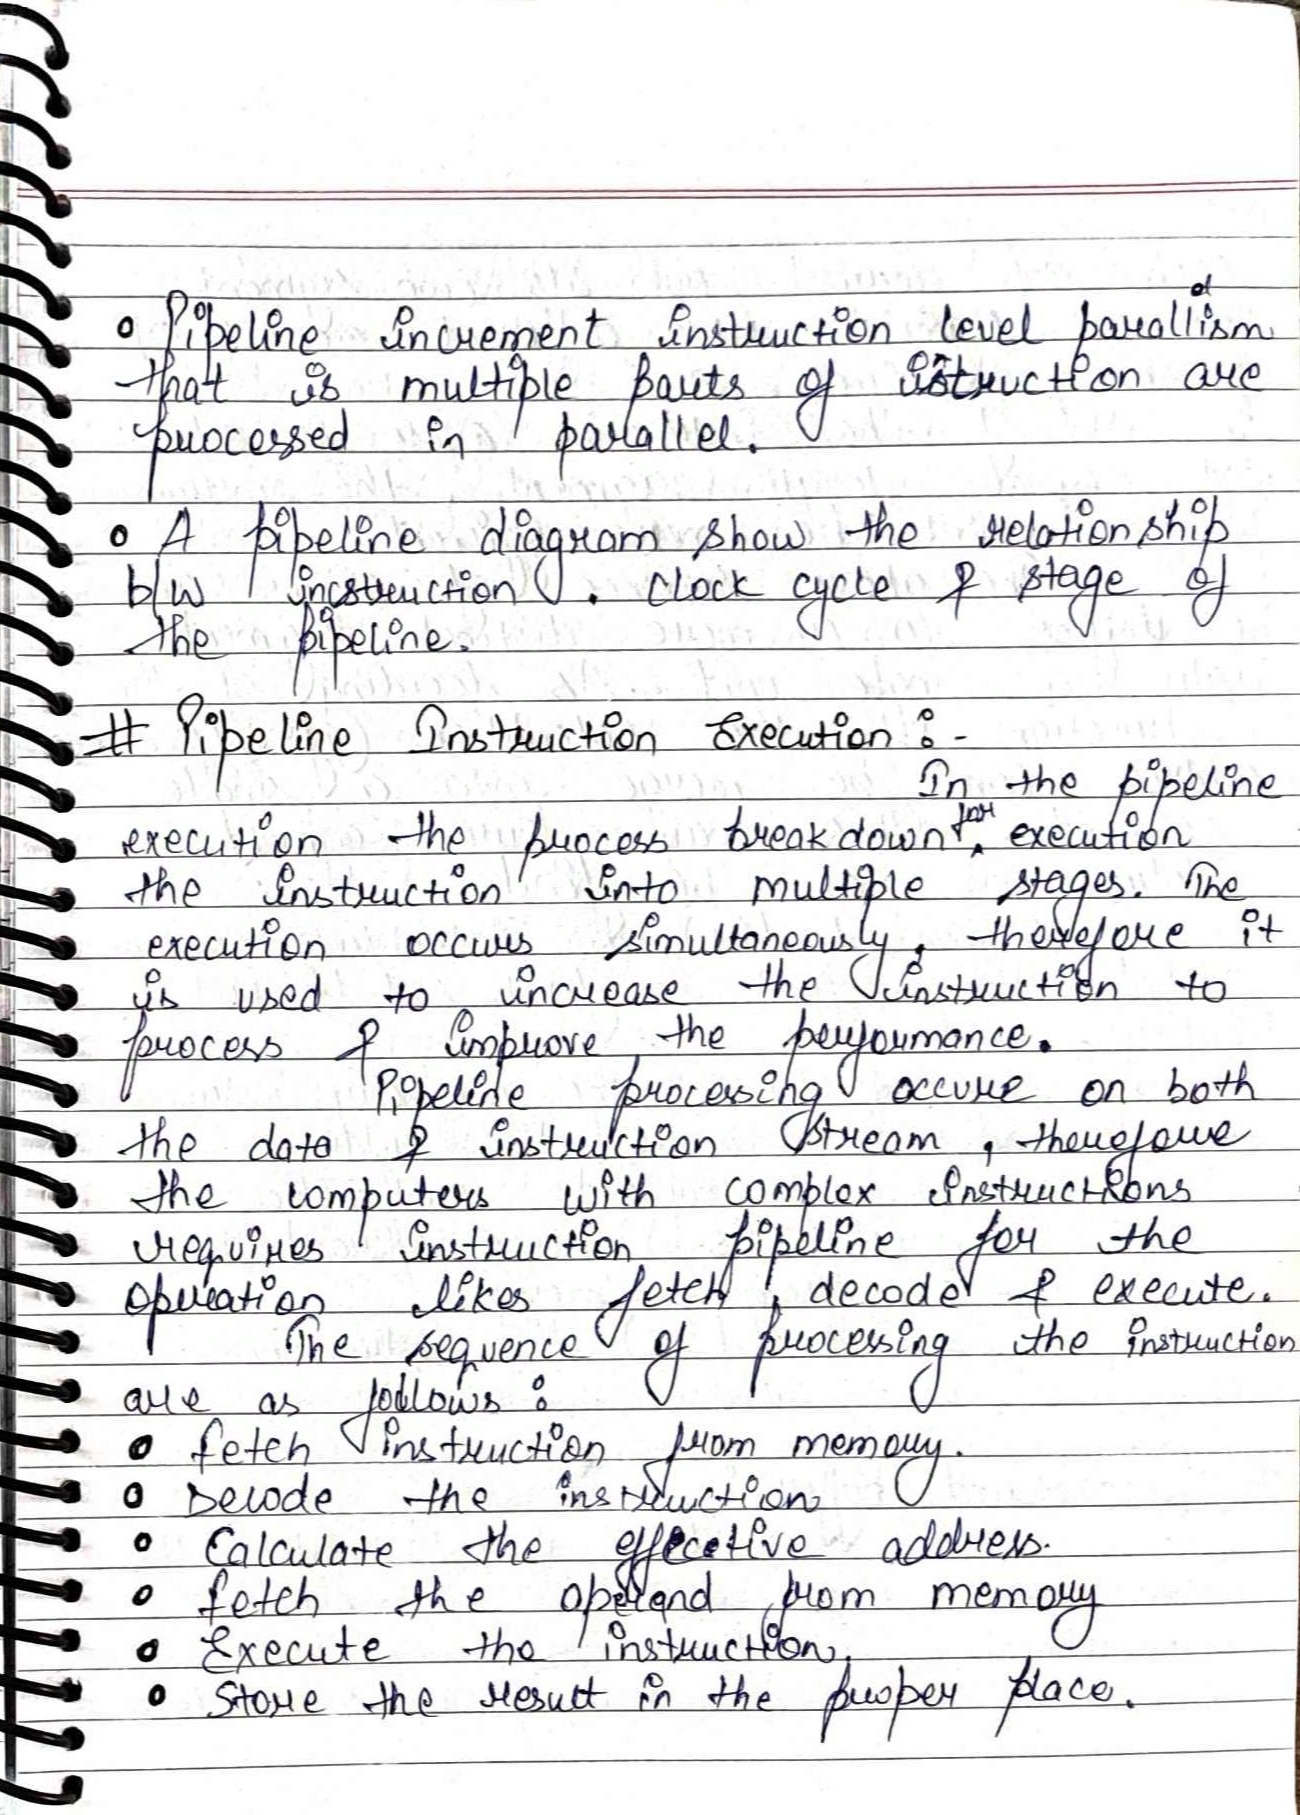 o Pipeline increment instruction level parallism
that is multiple parts of istruction are
processed in parallel.
o A pipeline diagram show the relationship
b/w incstruction . clock cycle & stage of
the pipeline.
# Pipeline Instruction Execution :-
In the pipeline
execution the process breakdown for execution
the instruction into multiple stages. The
execution occurs simultaneously, therefore it
is used to increase the instruction to
process & improve the performance.
Pipeline processing occure on both
the data & instruction stream, therefore
the computers with complex instructions
requires instruction pipeline for the
operation likes fetch, decode & execute.
The sequence of processing the instruction
are as follows :
o fetch instruction from memory.
o Decode the instruction
o Calculate the effecetive address.
o fetch the operand from memory
o Execute the instruction.
o Store the result in the proper place.